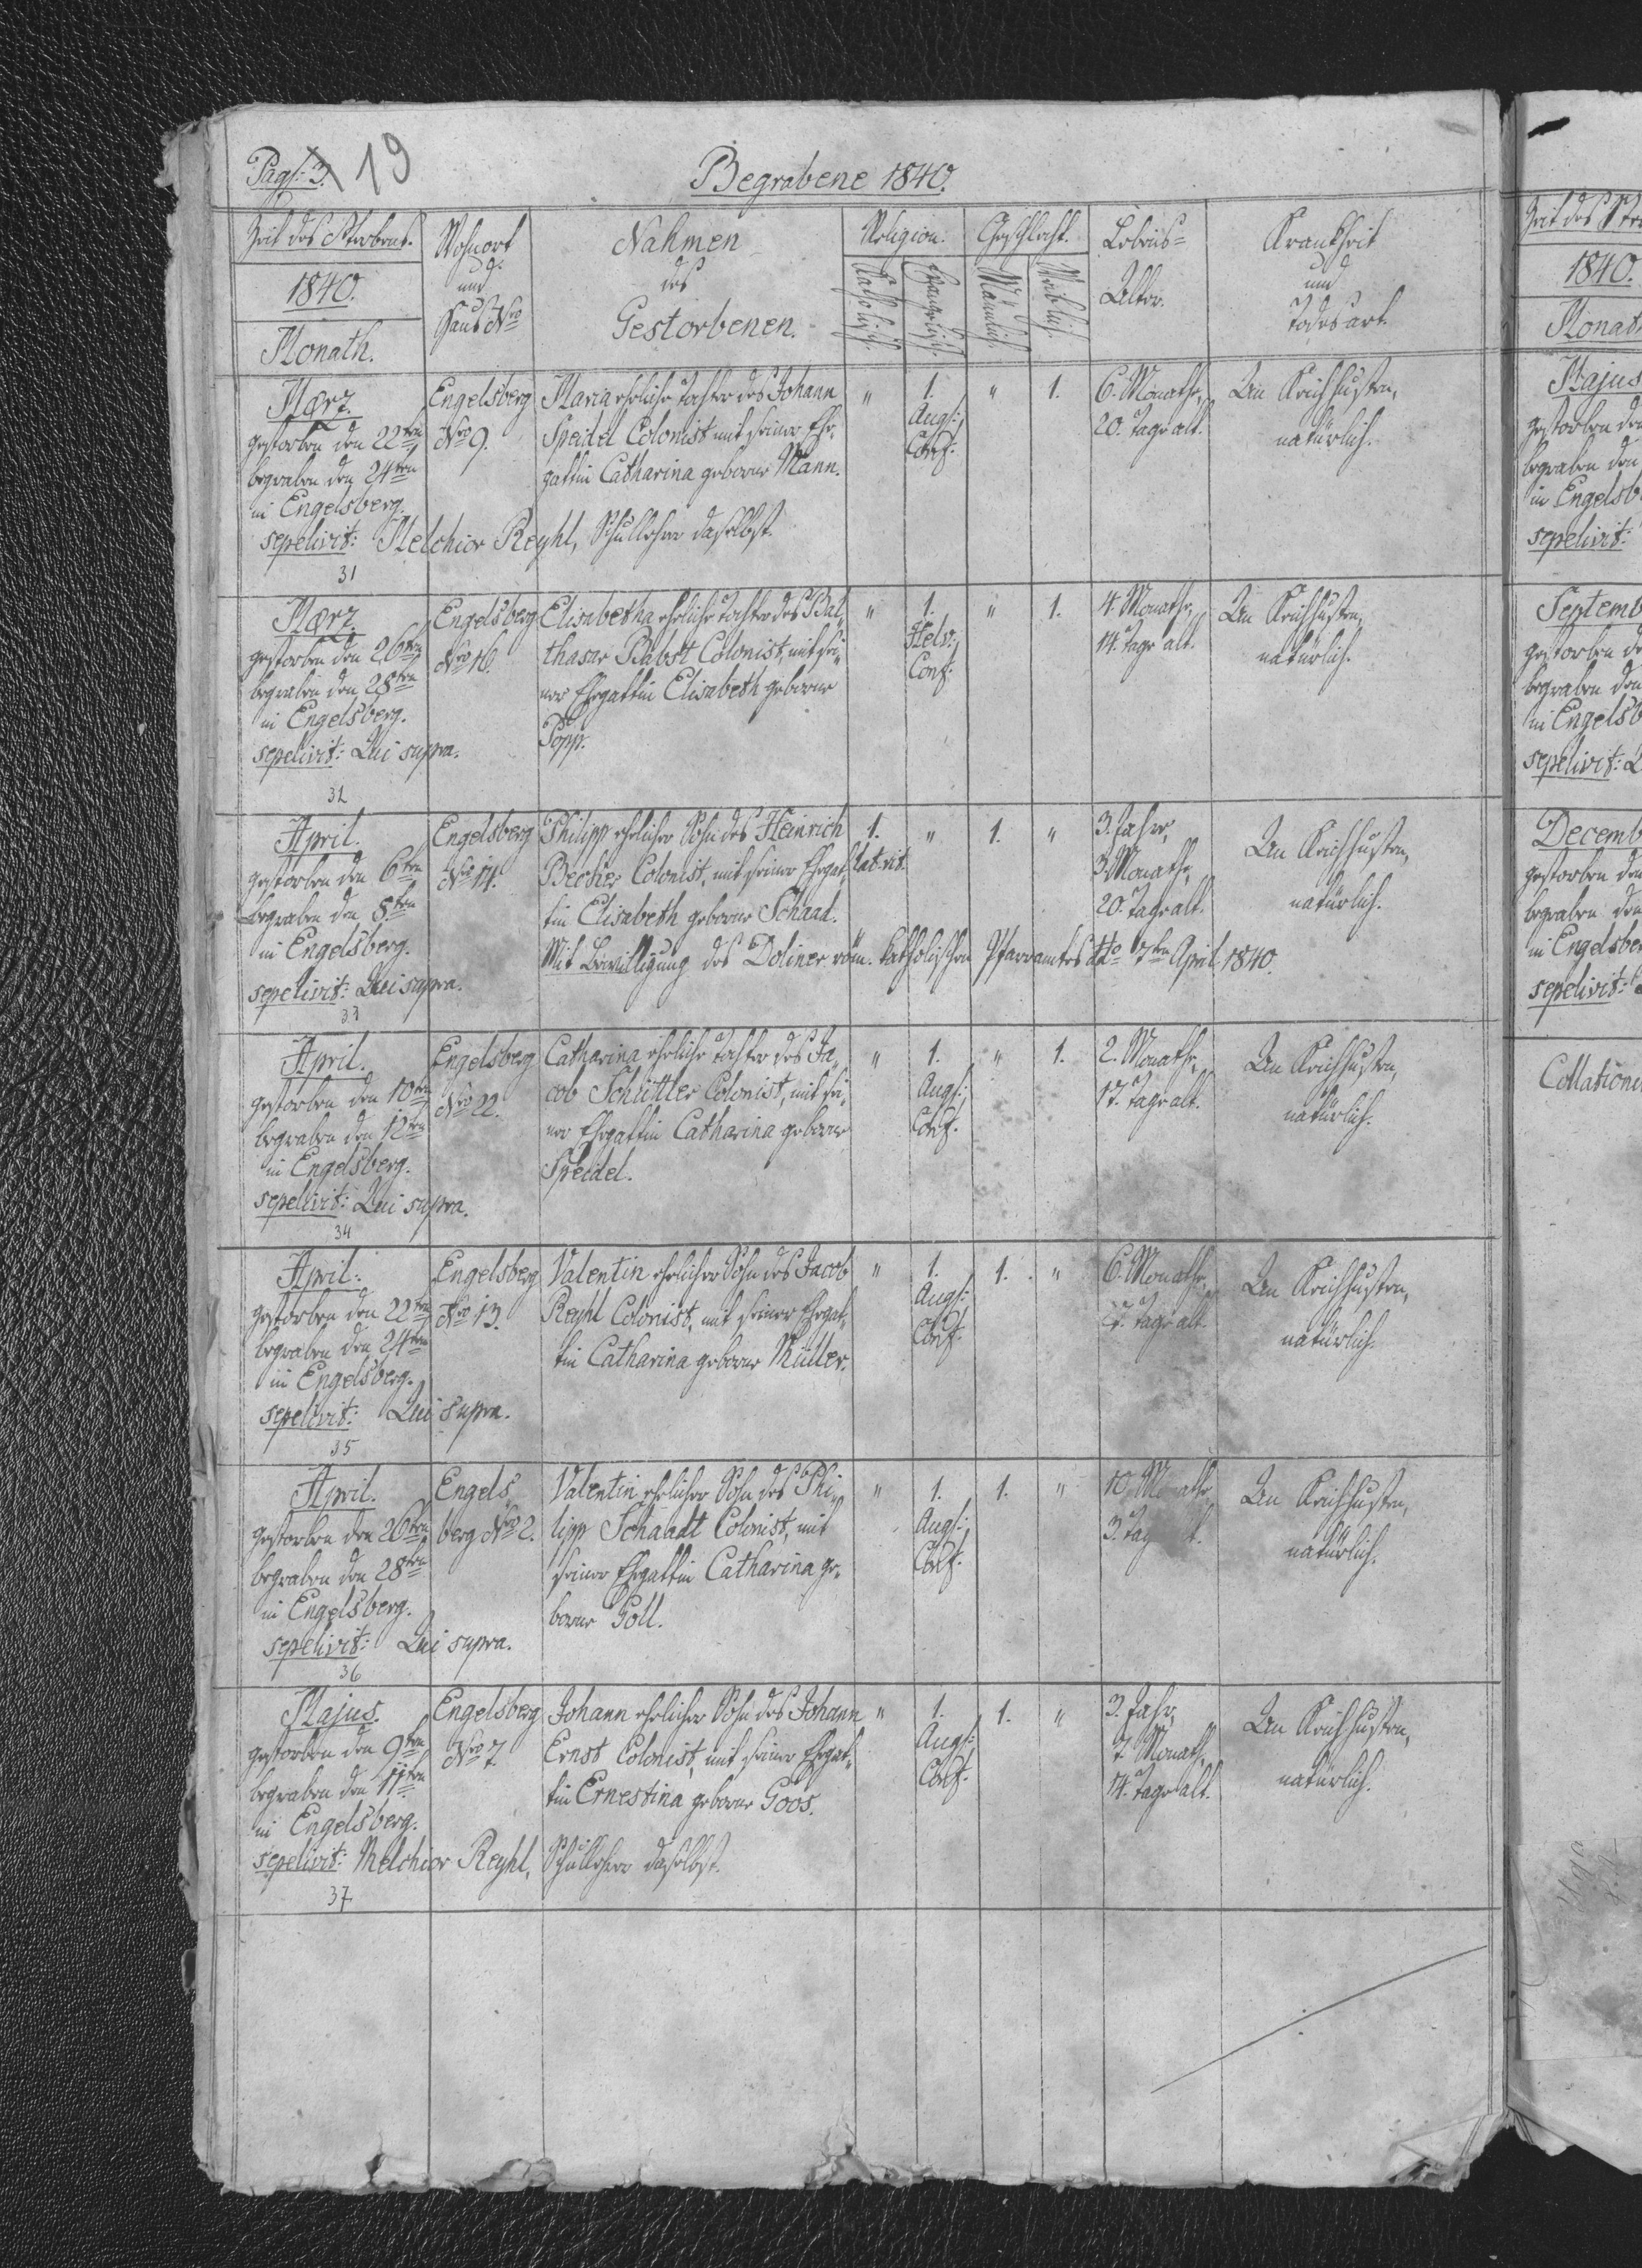 Pag: 3. 19
Begrabene 1840.
Zeit des Sterbens.
1840.
Monath.
Wohnort
und
Haus Nro
Nahmen
des
Gestorbenen.
Religion.
Katholisch.
Evangelisch.
Geschlecht.
Männlich.
Weiblich.
Lebens=
Alter.
Krankheit
und
Todesart.
Mærz.
gestorben den 22ten
begraben den 24ten
in Engelsberg.
sepelivit: Melchior Reyhl, Schullehrer daselbst.
31
Engelsberg
Nro 9.
Maria eheliche Tochter des Johann
Speidel Colonist mit seiner Ehe,
gattin Catharina geborne Mann.
" 1. " 1.
Augs:
Conf:
6. Monathe,
20. Tage alt.
An Keichhusten,
natürlich.
Mærz.
gestorben den 26ten
begraben den 28ten
in Engelsberg.
sepelivit: Qui supra.
32
Engelsberg
Nro 16.
Elisabetha eheliche Tochter des Bal,
thasar Pabst Colonist, mit sei,
ner Ehegattin Elisabeth geborne
Popp.
" 1. " 1.
Helv:
Conf:
4. Monathe,
14. Tage alt.
An Keichhusten,
natürlich.
April.
gestorben den 6ten
begraben den 8ten
in Engelsberg.
sepelivit: Qui supra.
33
Engelsberg
Nro 14.
Philipp ehelicher Sohn des Heinrich
Becher Colonist, mit seiner Ehegat,
tin Elisabeth geborne Schaad.
Mit Bewilligung des Doliner röm. katholischen Pfarramtes dto 7ten April 1840.
1. " 1. "
lat: rit.
3. Jahre,
3 Monathe,
20. Tage alt.
An Keichhusten,
natürlich.
April.
gestorben den 10ten
begraben den 12ten
in Engelsberg.
sepelivit: Qui supra.
34
Engelsberg
Nro 22.
Catharina eheliche Tochter des Ja,
cob Schüttler Colonist, mit sei,
ner Ehegattin Catharina geborne
Speidel.
" 1. " 1.
Augs:
Conf:
2. Monathe,
17. Tage alt.
An Keichhusten,
natürlich.
April.
gestorben den 22ten
begraben den 24ten
in Engelsberg.
sepelivit: Qui supra.
35
Engelsberg
Nro 13.
Valentin ehelicher Sohn des Jacob
Reyhl Colonist, mit seiner Ehegat,
tin Catharina geborne Müller.
" 1. 1. "
Augs:
Conf:
6. Monathe,
Tage alt.
An Keichhusten,
natürlich.
April.
gestorben den 26ten
begraben den 28ten
in Engelsberg.
sepelivit: Qui supra.
36
Engels,
berg Nro 2.
Valentin ehelicher Sohn des Phi,
lipp Schaadt Colonist, mit
seiner Ehegattin Catharina ge,
borne Goll.
" 1. 1. "
Augs:
Conf:
10. Monathe
3. Tage alt.
An Keichhusten,
natürlich.
Majus.
gestorben den 9ten
begraben den 11ten
in Engelsberg.
sepelivit: Melchior Reyhl, Schullehrer daselbst.
37
Engelsberg
Nro 7.
Johann ehelicher Sohn des Johann
Ernst Colonist, mit seiner Ehegat,
tin Ernestina geborne Goos.
" 1. 1. "
Augs:
Conf:
3. Jahr,
7 Monath,
14. Tage alt.
An Keichhusten,
natürlich.
Zeit des Ster
1840.
Monat
Majus
gestorben den
begraben den
in Engelsb
sepelivit:
Septemb
gestorben de
begraben den
in Engelsb
sepelivit: Q
Decemb
gestorben den
begraben den
in Engelsber
sepelivit:
Collation